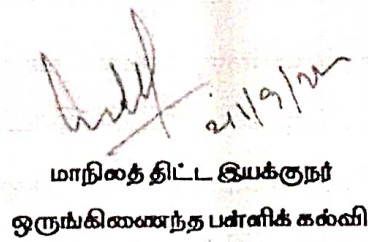 மாநிலத் திட்ட இயக்குநர்
ஒருங்கிணைந்த பள்ளிக் கல்வி